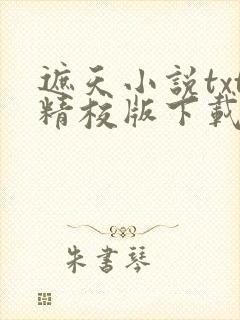 遮天小説txt
精校版下載
朱書琴